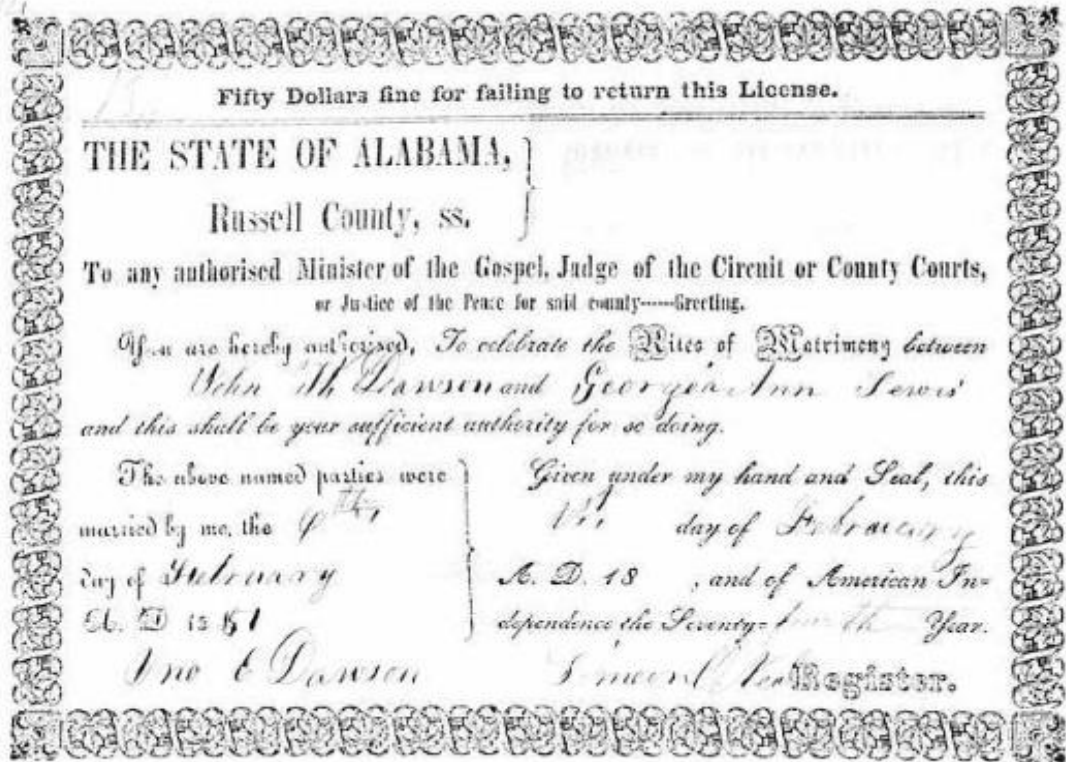 Fifty Dollars fine for failing to return this License.
THE STATE OF ALABAMA,
Russell County, ss.
To any authorised Minister of the Gospel, Judge of the Circuit or County Courts,
or Justice of the Peace for said county------Greeting.
You are hereby authorised, To celebrate the Rites of Matrimony between
John Dawson and Georgia Ann Lewis
and this shall be your sufficient authority for so doing.
The above named parties were
married by me, the
day of February
A. D 1851
Jno E Dawson
Given under my hand and Seal, this
day of February
A. D. 18 , and of American In-
dependence the Seventy-fourth Year.
Simeon Register.